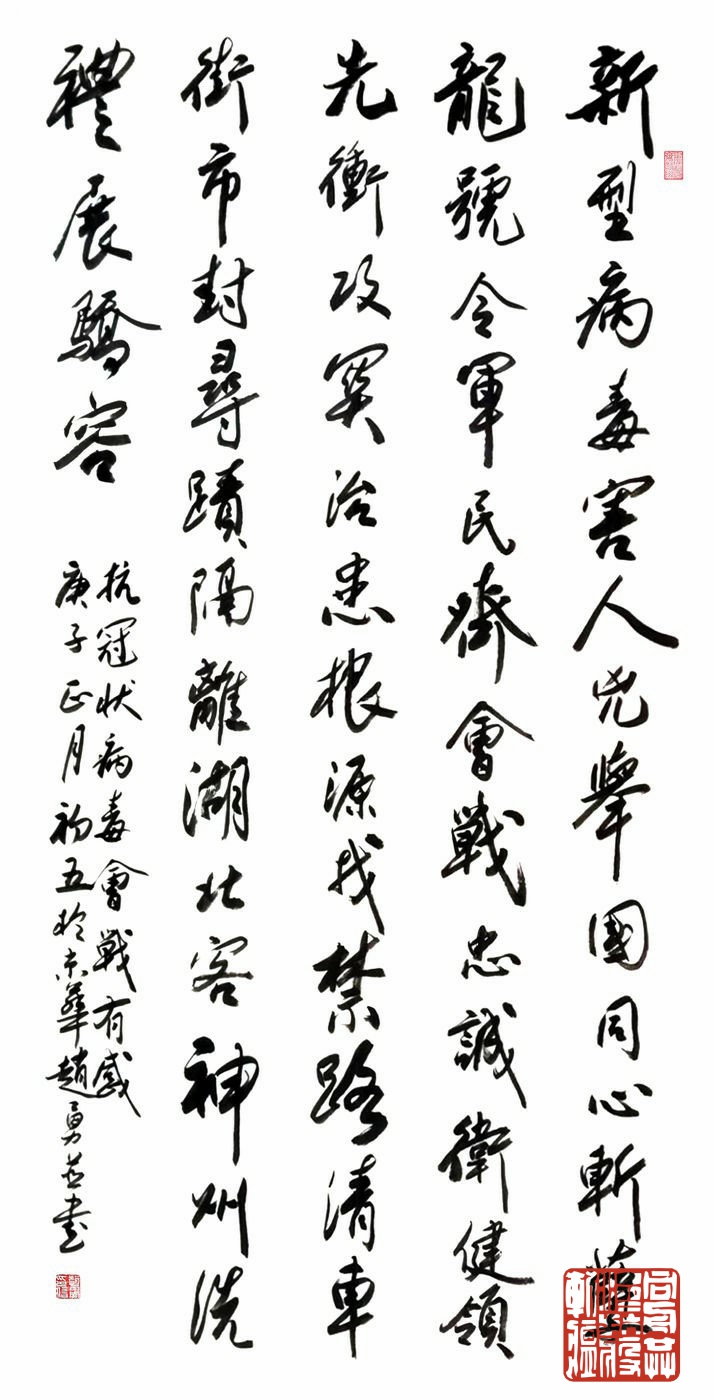 新型病毒害人兇舉國同心斬孽
龍號令軍民齊會戰忠誠衛健領
先衝攻關治患根源找禁路清車
街市封尋蹟隔離湖北客神州洗
禮展驕容
抗冠状病毒會戰有感
庚子正月初五於京華趙勇並書